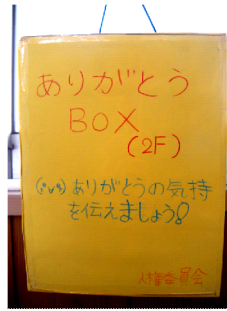 ありがとう
BOX
(2F)
(°v°)ありがとうの気持
を伝えましょう!
人権委員会